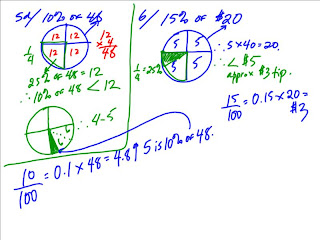 5a/ 10% of 48
12 12
12 12
12
x 4
48
1/4
25% of 48 = 12
∴ 10% of 48 < 12
∴ 4-5
10/100 = 0.1 x 48 = 4.8 ↑ 5 is 10% of 48.
b/ 15% of $20
5 5
5
1/4 = 25%
∴ 5 x 4 = 20.
∴ < $5
approx $3 tip.
15/100 = 0.15 x 20 =
$3